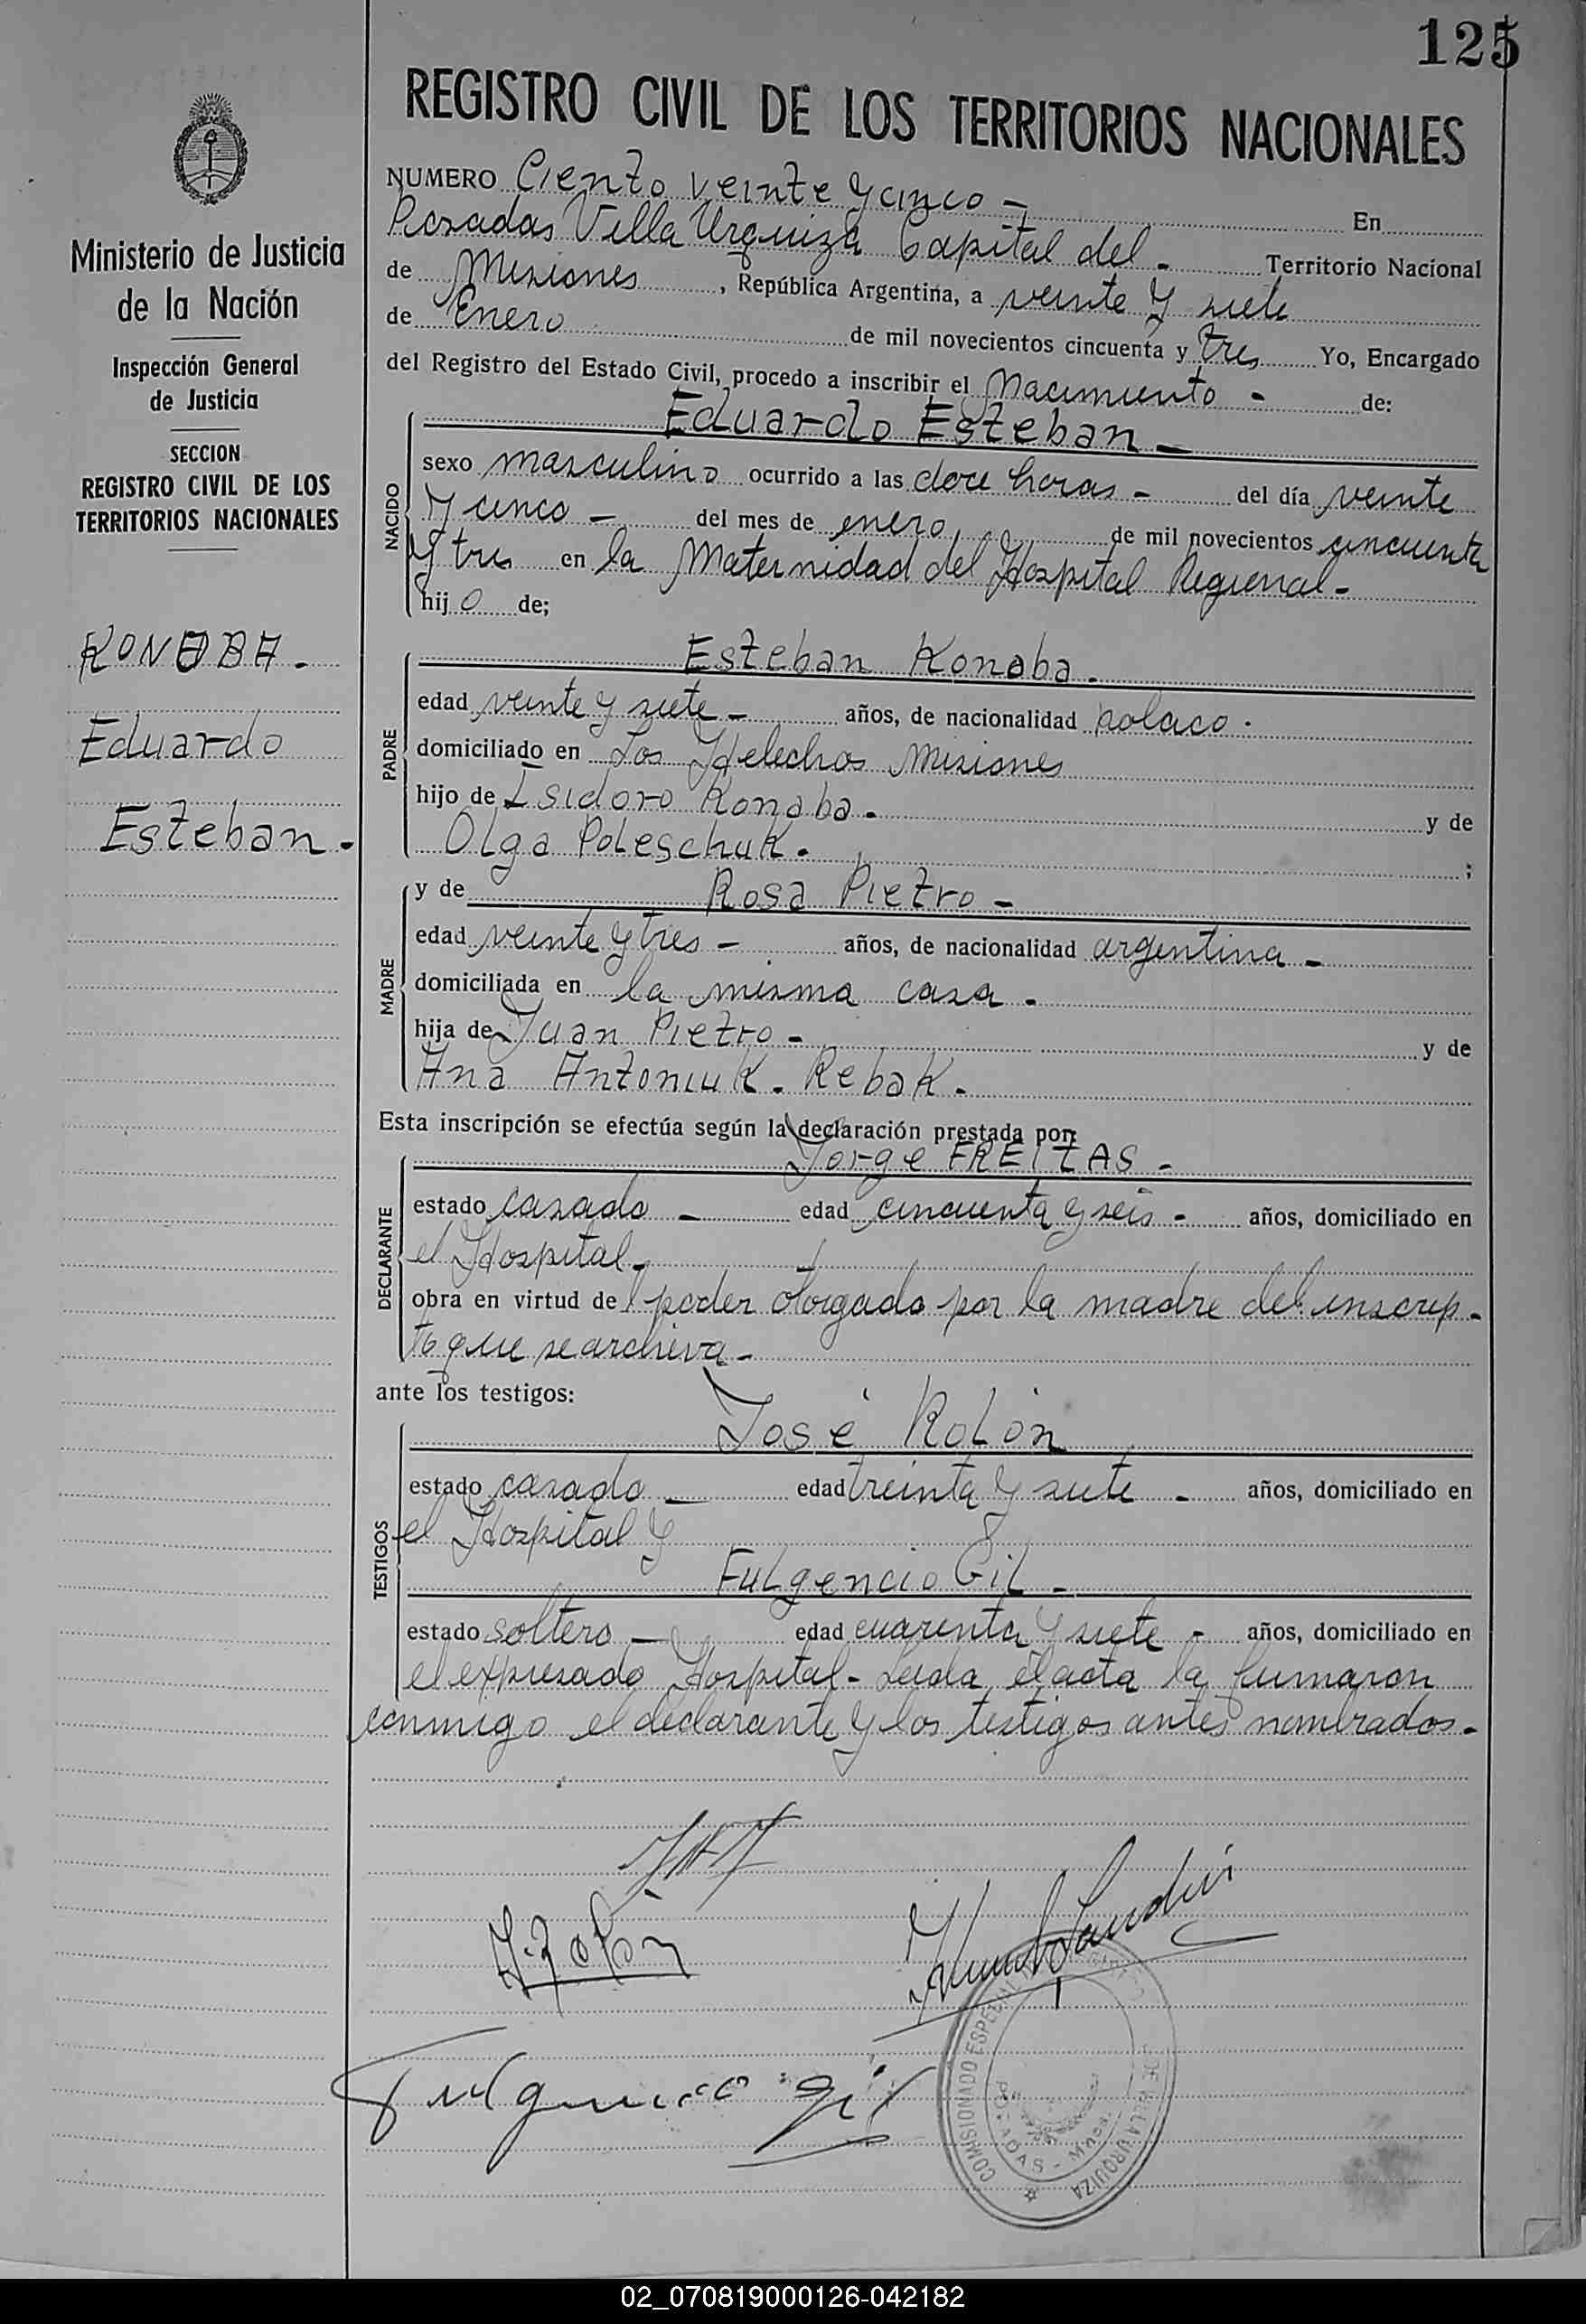 125
REGISTRO CIVIL DE LOS TERRITORIOS NACIONALES
Ministerio de Justicia
de la Nación
Inspección General
de Justicia
SECCION
REGISTRO CIVIL DE LOS
TERRITORIOS NACIONALES
KONOBA.
Eduardo
Esteban.
NUMERO Ciento veinte y cinco - En
Posadas Villa Urquiza Capital del - Territorio Nacional
de Misiones, República Argentina, a veinte y siete
de Enero de mil novecientos cincuenta y tres Yo, Encargado
del Registro del Estado Civil, procedo a inscribir el Nacimiento - de:
Eduardo Esteban -
NACIDO
sexo masculino ocurrido a las doce horas - del día veinte
y cinco - del mes de enero de mil novecientos cincuenta
y tres en la Maternidad del Hospital Regional -
hijo de;
PADRE
Esteban Konoba.
edad veinte y siete - años, de nacionalidad polaco.
domiciliado en Los Helechos Misiones
hijo de Isidoro Konoba. y de
Olga Poleschuk. ;
MADRE
y de Rosa Pietro -
edad veinte y tres - años, de nacionalidad argentina -
domiciliada en la misma casa.
hija de Juan Pietro - y de
Ana Antoniuk. Rebak.
Esta inscripción se efectúa según la declaración prestada por:
DECLARANTE
Jorge FREITAS -
estado casado - edad cincuenta y seis - años, domiciliado en
el Hospital -
obra en virtud del poder otorgado por la madre del inscrip-
to que se archiva -
ante los testigos:
TESTIGOS
José Rolón
estado casado - edad treinta y siete - años, domiciliado en
el Hospital y
Fulgencio Gil -
estado soltero - edad cuarenta y siete - años, domiciliado en
el expresado Hospital - Leida el acta la firmaron
conmigo el declarante y los testigos antes nombrados -
J. Rolón
Fulgencio Gil
COMISIONADO ESPECIAL
DE VILLA URQUIZA
POSADAS - Mnes.
02_070819000126-042182